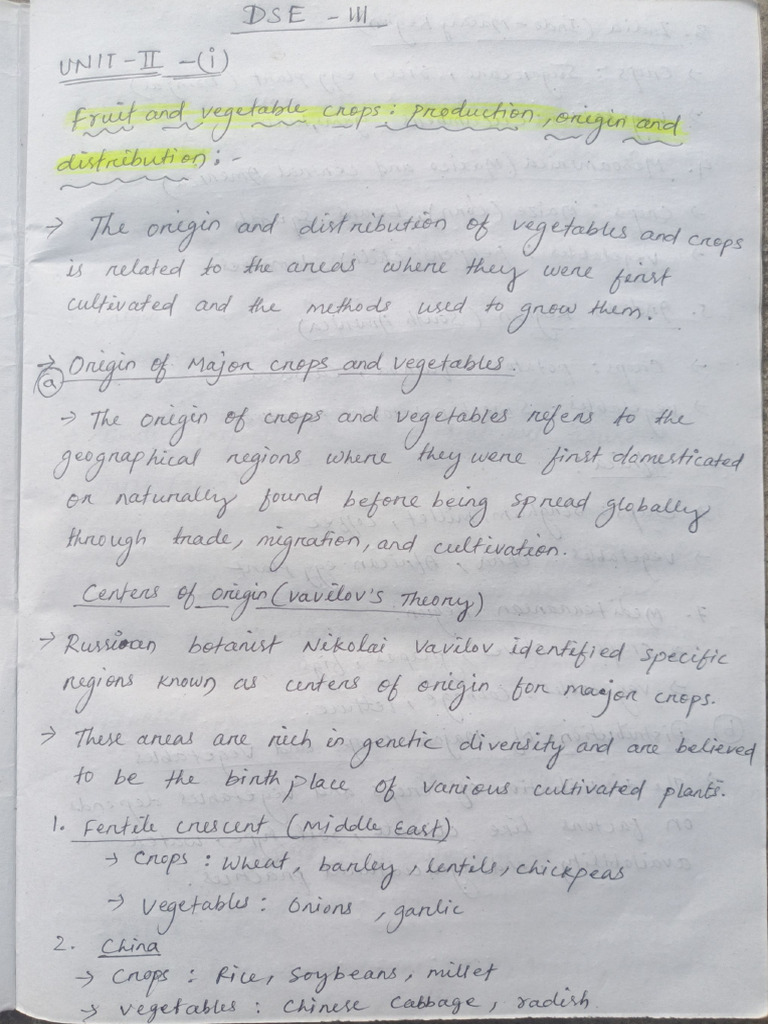 DSE - III
UNIT-II -(i)
Fruit and vegetable crops: production, origin and
distribution; -
→ The origin and distribution of vegetables and crops
is related to the areas where they were first
cultivated and the methods used to grow them.
→ (a) Origin of Major crops and vegetables.
→ The origin of crops and vegetables refers to the
geographical regions where they were first domesticated
or naturally found before being spread globally
through trade, migration, and cultivation.
Centers of origin (Vavilov's Theory)
→ Russian botanist Nikolai Vavilov identified specific
regions known as centers of origin for major crops.
→ These areas are rich in genetic diversity and are believed
to be the birth place of various cultivated plants.
1. Fertile crescent (Middle East)
→ Crops : Wheat, barley, lentils, chickpeas
→ Vegetables : Onions, garlic
2. China
→ Crops : Rice, Soybeans, millet
→ vegetables : Chinese Cabbage, radish.